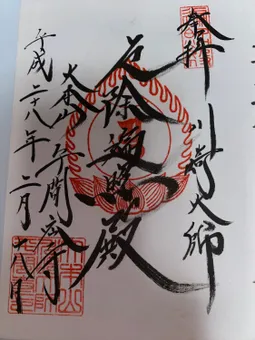 奉拝
川崎大師
厄除遍照殿
大本山平間寺
平成二十八年二月十八日